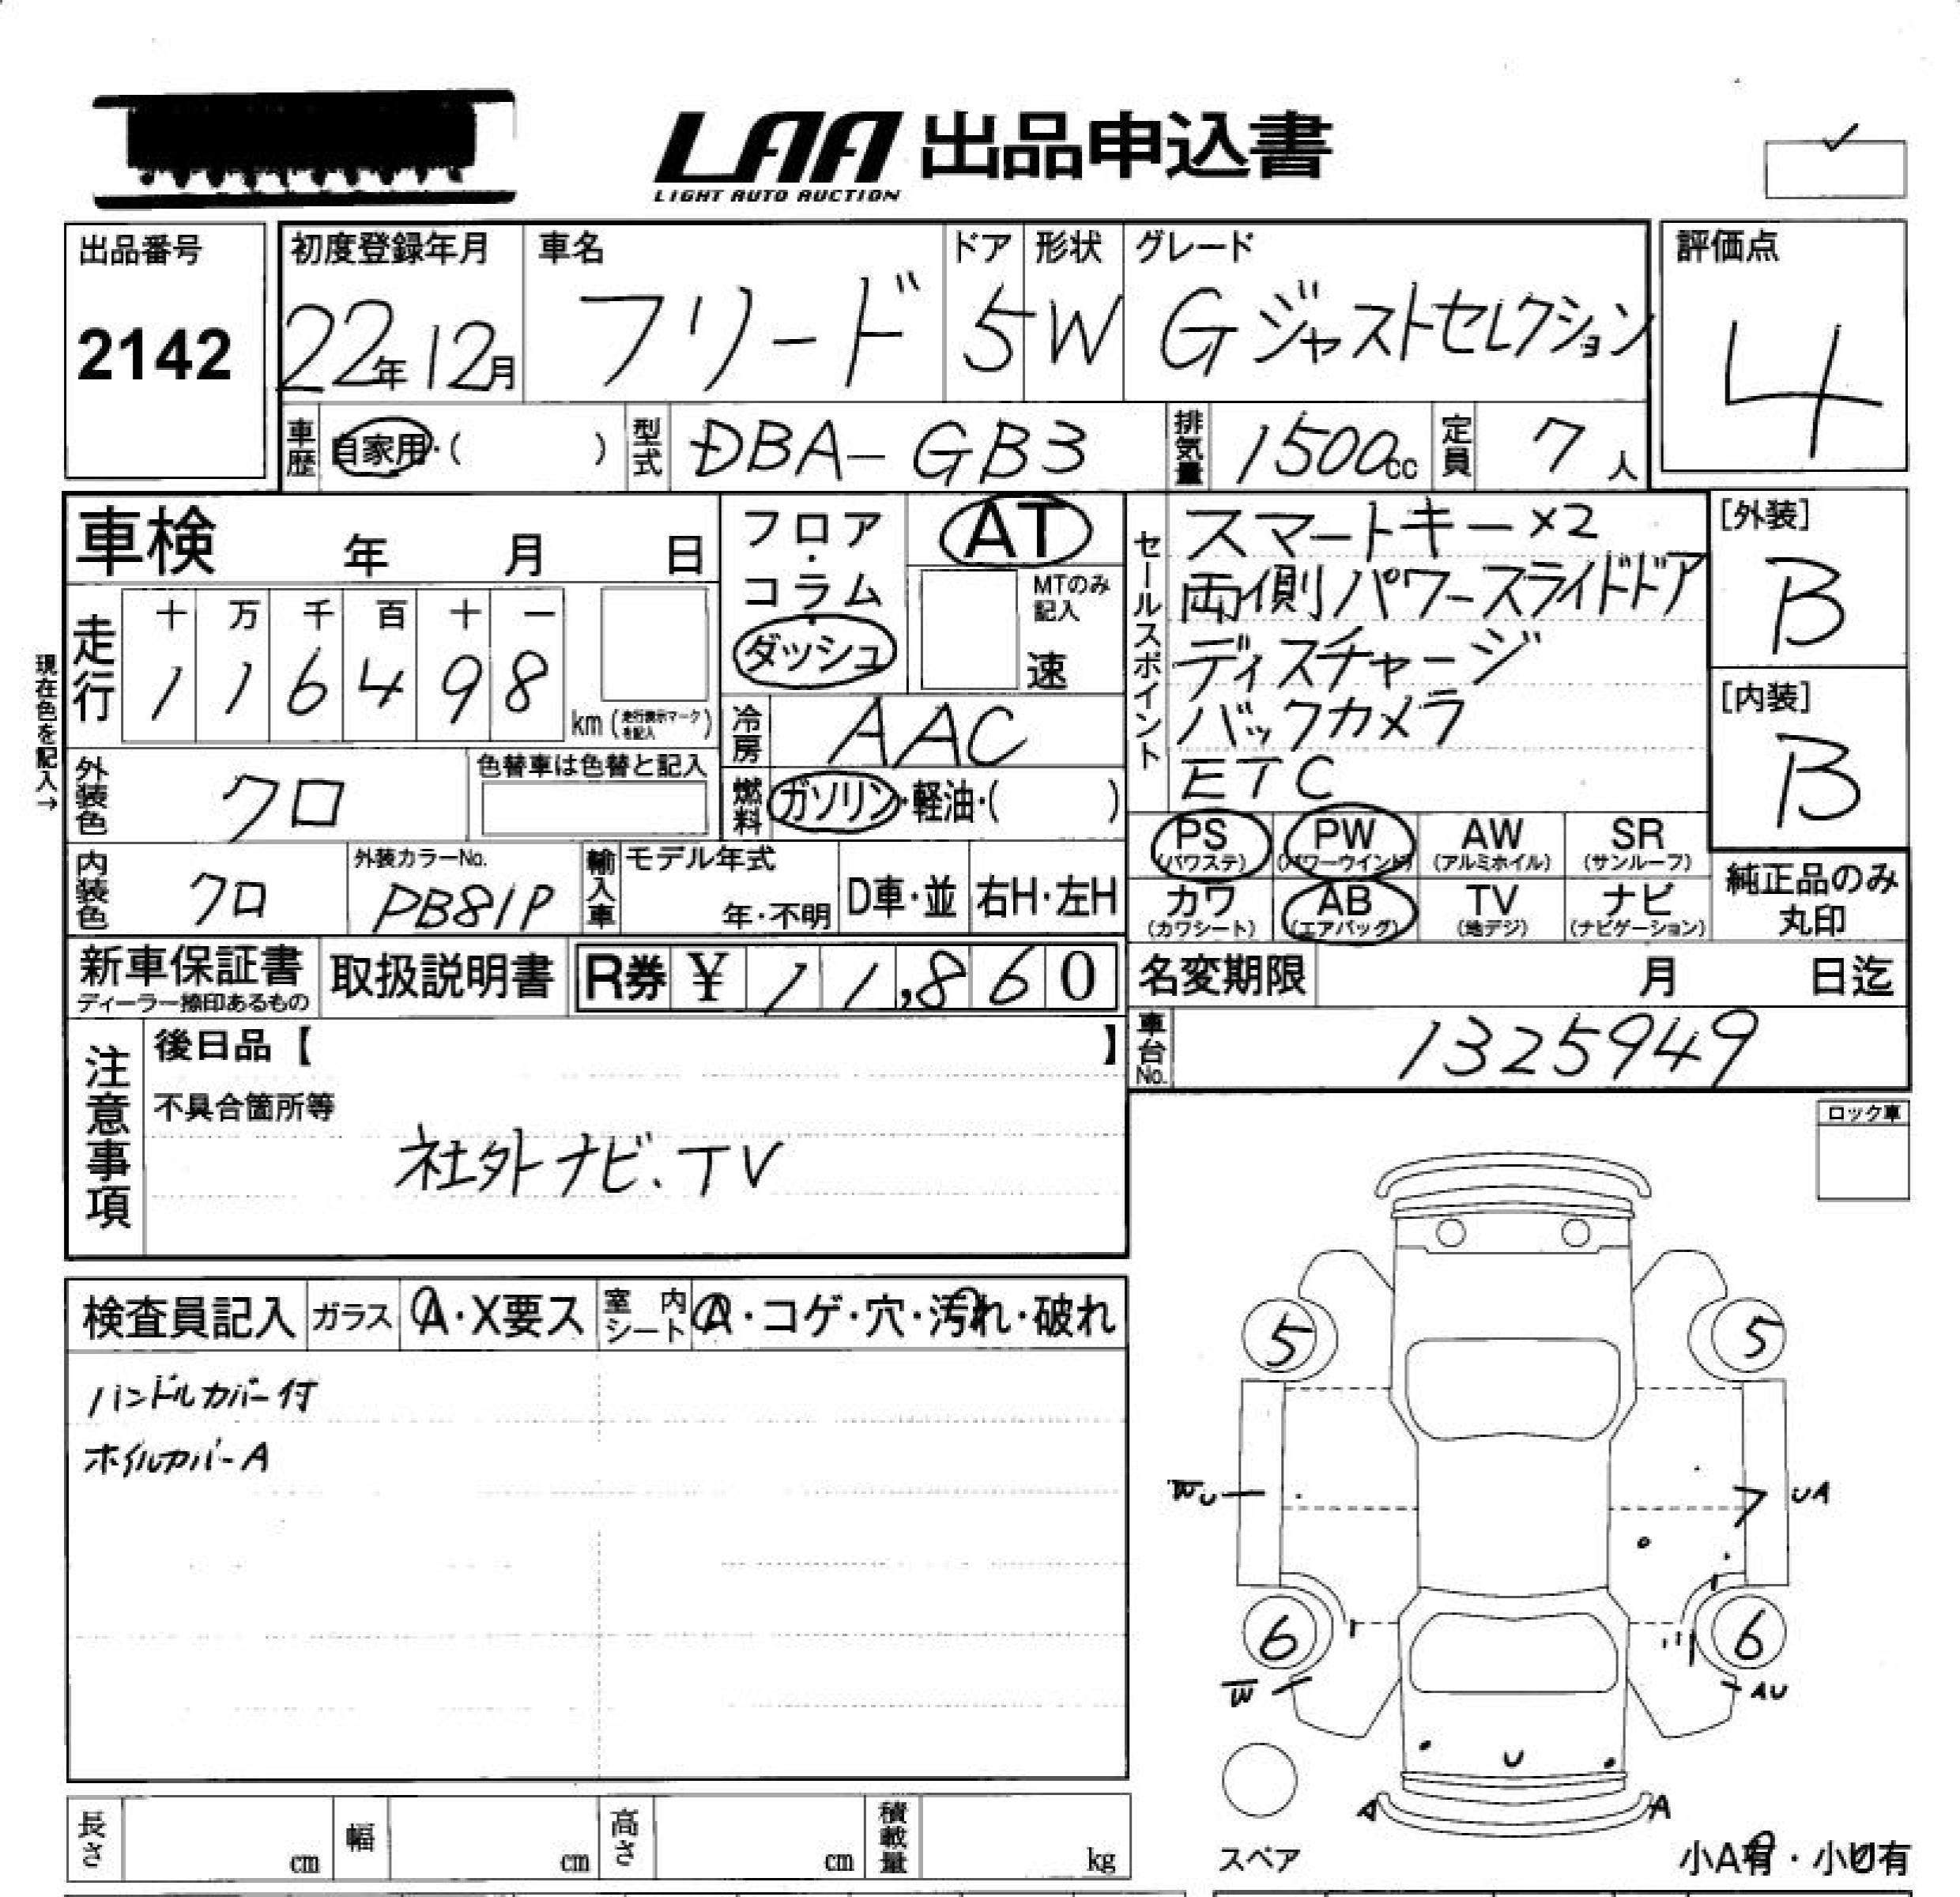 LAA 出品申込書
LIGHT AUTO AUCTION
出品番号
2142
初度登録年月
22年12月
車名
フリード
ドア
5
形状
W
グレード
Gジャストセレクション
評価点
4
車歴
自家用・( )
型式
DBA-GB3
排気量
1500cc
定員
7人
車検 年 月 日
フロア・コラム・ダッシュ
AT
MTのみ記入
速
走行
十 万 千 百 十 一
1 1 6 4 9 8
km(走行表示マークを記入)
現在色を記入→
冷房
AAC
外装色
クロ
色替車は色替と記入
燃料
ガソリン・軽油・( )
内装色
クロ
外装カラーNo.
PB81P
輸入車
モデル年式
年・不明
D車・並
右H・左H
セールスポイント
スマートキー×2
両側パワースライドドア
ディスチャージ
バックカメラ
ETC
[外装]
B
[内装]
B
PS (パワステ)
PW (パワーウインド)
AW (アルミホイル)
SR (サンルーフ)
カワ (カワシート)
AB (エアバッグ)
TV (地デジ)
ナビ (ナビゲーション)
純正品のみ
丸印
新車保証書
ディーラー捺印あるもの
取扱説明書
R券 ¥ 11,860
名変期限 月 日迄
車台No.
1325949
注意事項
後日品【 】
不具合箇所等
社外ナビ、TV
ロック車
検査員記入
ガラス
A・X要ス
室内シート
A・コゲ・穴・汚れ・破れ
ハンドルカバー付
ホイルカバーA
5
5
W U
UA
6
6
W
AU
U
A
A
スペア
小A有・小U有
長さ cm
幅 cm
高さ cm
積載量 kg